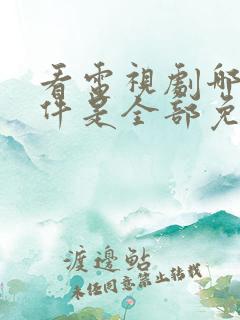 看電視劇哪
件是全部免
渡邊鲇
未经同意禁止转载